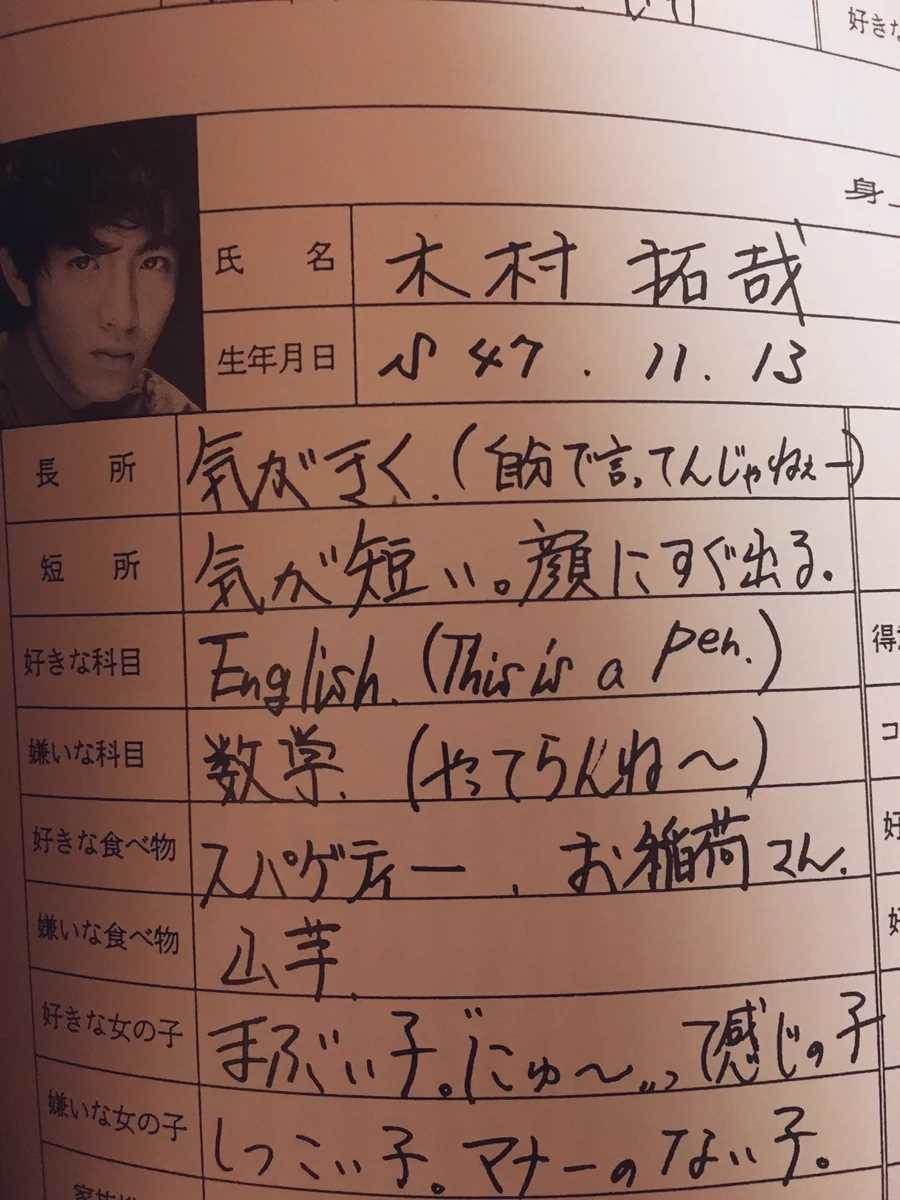 好きな
身
氏 名 木村 拓哉
生年月日 S 47. 11. 13
長 所 気がきく.(自分で言ってんじゃねぇー)
短 所 気が短い。顔にすぐ出る.
好きな科目 English. (This is a pen.)
嫌いな科目 数学. (やってらんね〜)
好きな食べ物 スパゲティー , お稲荷さん.
嫌いな食べ物 山芋.
好きな女の子 まぶい子。“にゅ〜„って感じの子
嫌いな女の子 しつこい子。マナーのない子。
コ
好
好